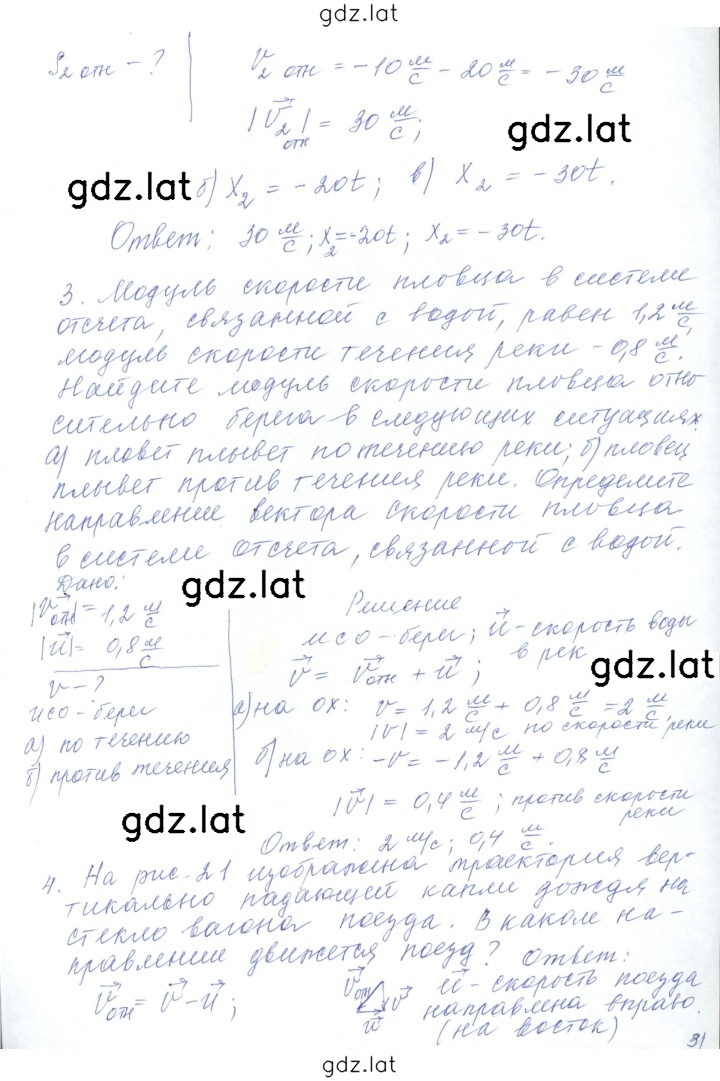 gdz.lat
S₂ отн - ?
v₂ отн = -10 м/с - 20 м/с = -30 м/с
|v⃗₂ отн| = 30 м/с;
gdz.lat
gdz.lat
б) x₂ = -20t; в) x₂ = -30t.
Ответ: 30 м/с; x₂=-20t; x₂ = -30t.
3. Модуль скорости пловца в системе
отсчета, связанной с водой, равен 1,2 м/с,
модуль скорости течения реки - 0,8 м/с.
Найдите модуль скорости пловца отно
сительно берега в следующих ситуациях:
а) пловец плывет по течению реки; б) пловец
плывет против течения реки. Определите
направление вектора скорости пловца
в системе отсчета, связанной с водой.
Дано:
gdz.lat
|v⃗отн| = 1,2 м/с
|u⃗| = 0,8 м/с
v - ?
исо - берег
а) по течению
б) против течения
Решение
исо - берег; u⃗ - скорость воды
в рек
gdz.lat
v⃗ = v⃗отн + u⃗;
а) на ox: v = 1,2 м/с + 0,8 м/с = 2 м/с
|v| = 2 м/с по скорости реки
б) на ox: -v = -1,2 м/с + 0,8 м/с
|v⃗| = 0,4 м/с; против скорости
реки
gdz.lat
Ответ: 2 м/с; 0,4 м/с.
4. На рис. 21 изображена траектория вер-
тикально падающей капли дождя на
стекло вагона поезда. В каком на-
правлении движется поезд? Ответ:
v⃗отн = v⃗ - u⃗;
v⃗отн v⃗ u⃗
u⃗ - скорость поезда
направлена вправо.
(на восток)
31
gdz.lat